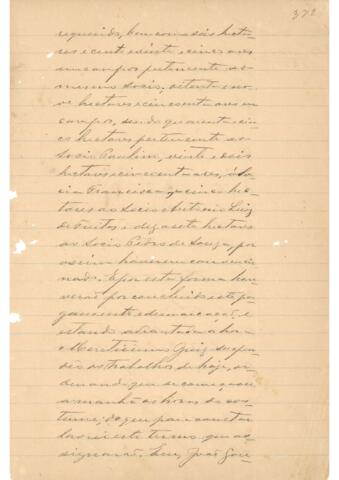 372
requerido, bem como seis hecta-
res e cento e vinte e cinco ares
em campos pertencente ao
mesmo socio, setenta e no-
ve hectares e cincoenta ares em
campos, sendo quarenta e cin-
co hectares pertencente ao
socio Paulino, vinte e dois
hectares e cincoenta ares, á So-
cia Francisca, e cinco hec-
tares ao Socio Antonio Luiz
de Freitas e dezasete hectares
ao Socio Pedro de Souza, por
assim haverem convencio-
nado. E por esta forma hou-
verão por concluido este pa-
gamento e demarcação, e
estando adiantada a hora
o Meretissimo Juiz suspen-
deo os trabalhos de hoje, or-
denando que se começasse
amanhã as horas do cos-
tume; do que para constar
lavrei este termo que as-
signarão. Eu, João José